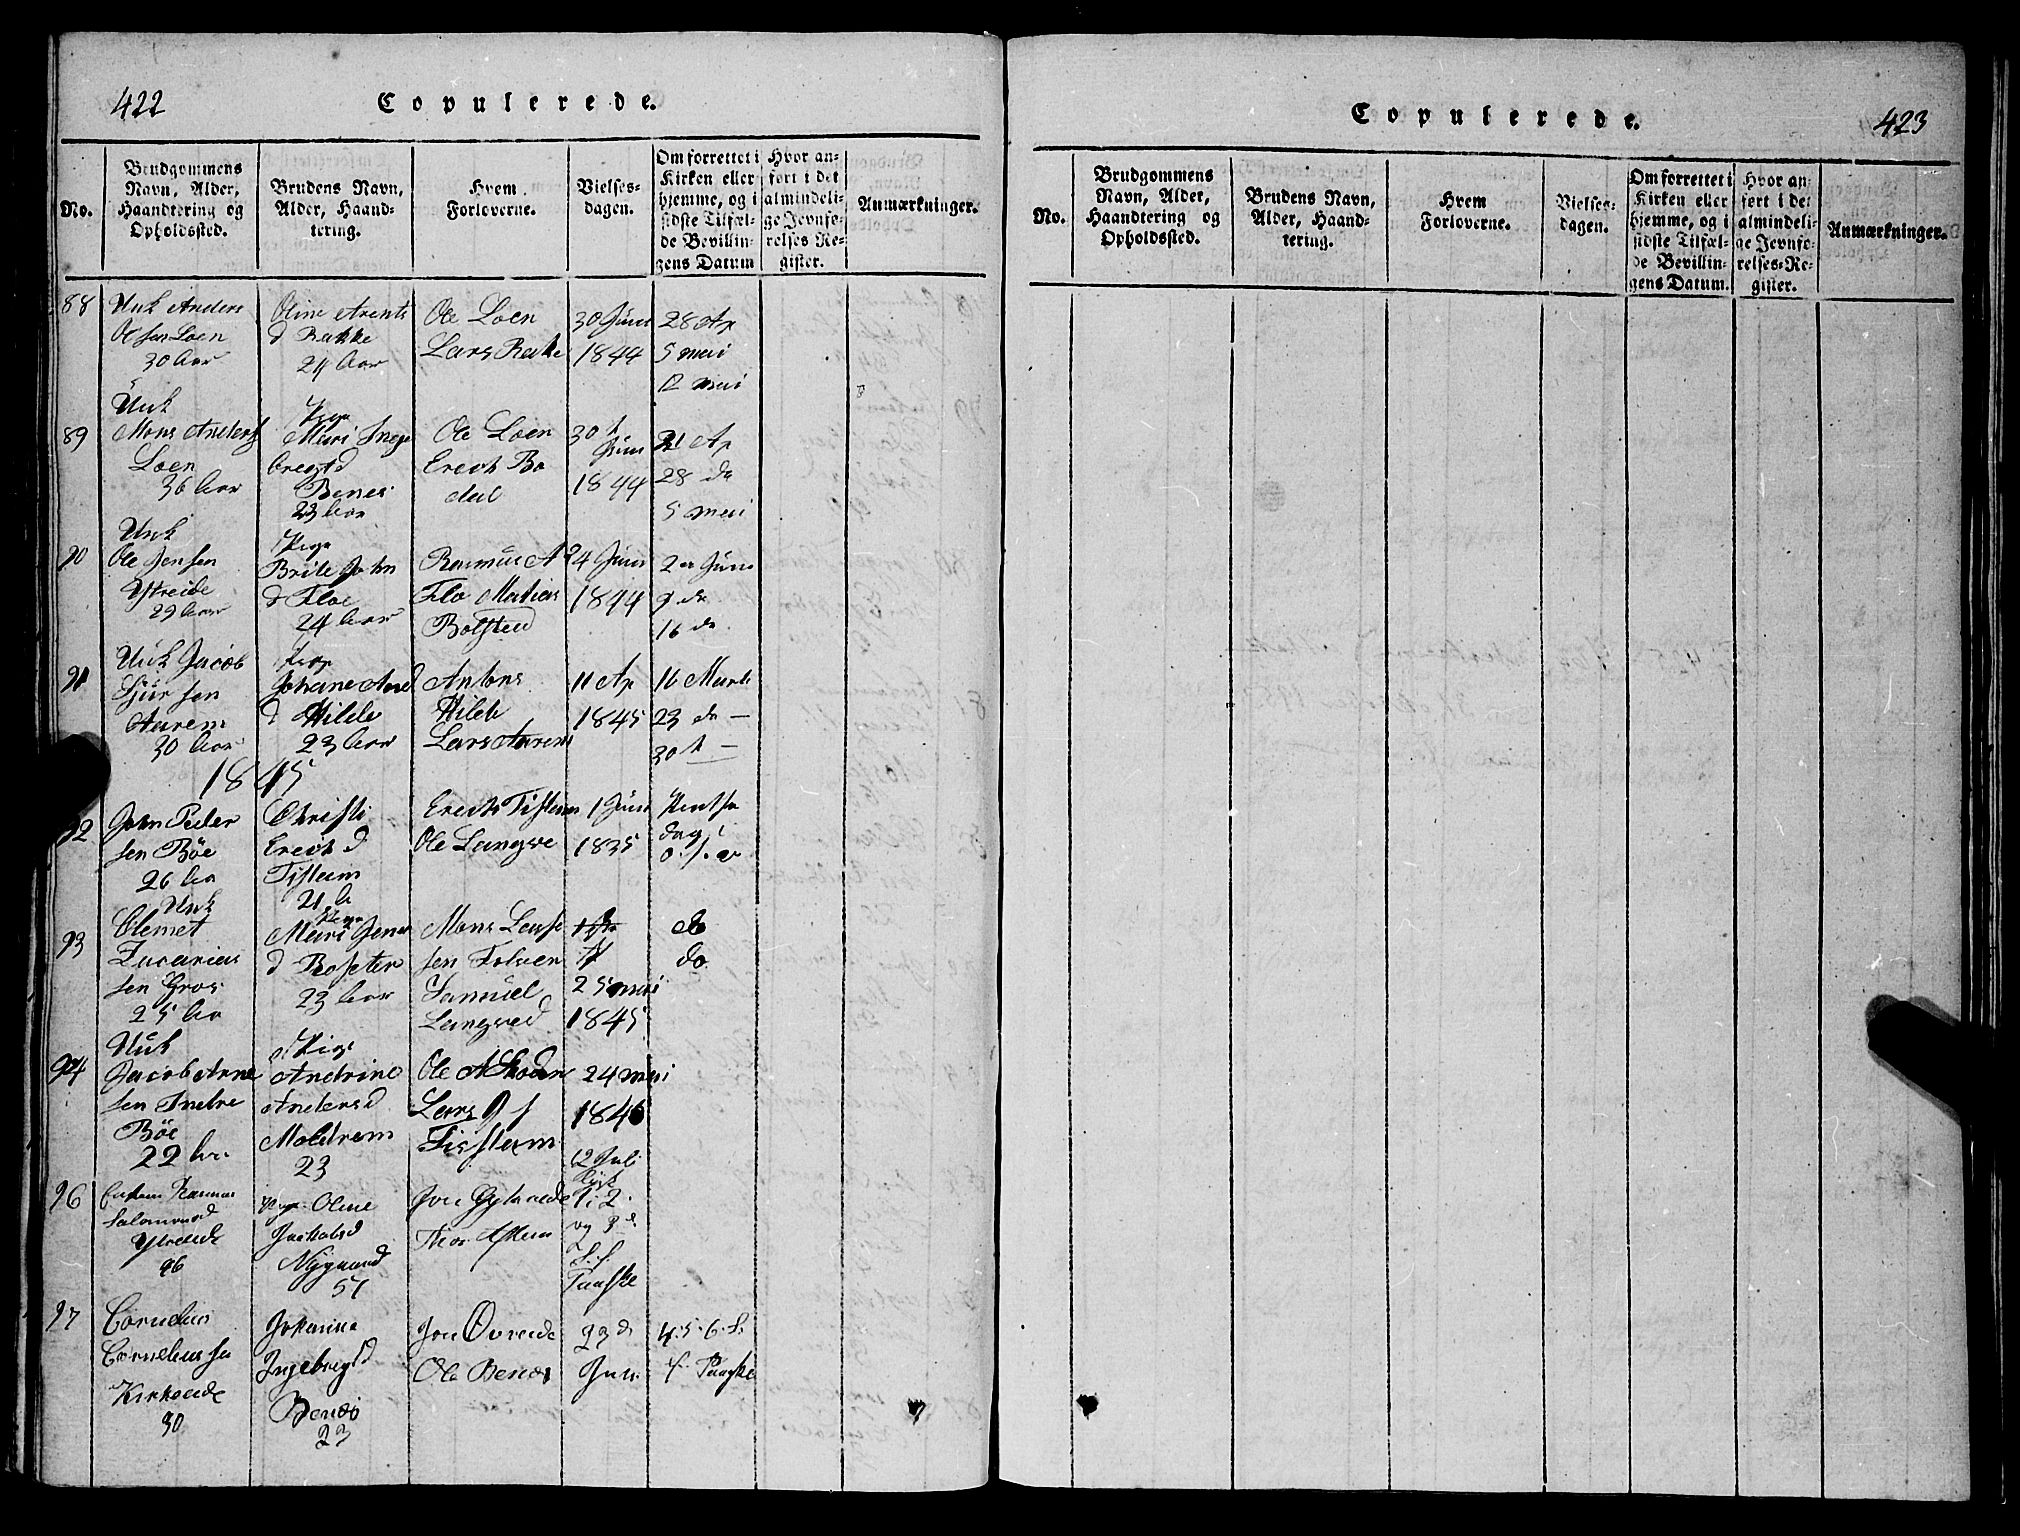 422
Copulerede.
No.
Brudgommens
Navn, Alder,
Haandtering og
Opholdssted.
Brudens Navn,
Alder, Haand-
tering.
Hvem
Forloverne.
Vielses-
dagen.
Om forrettet i
Kirken eller
hjemme, og i
sidste Tilfæl-
de Bevillin-
gens Datum
Hvor an-
ført i det
almindeli-
ge Jevnfø-
relses Re-
gister.
Anmærkninger.
88
Unk Anders
Olsen Loen
30 Aar
Oline Arents
d Rakke
24 Aar
Ole Loen
Lars Rake
30 Juni
1844
28 Ap
5 mai
12 mai
89
Unk
Mons Anders
Loen
36 Aar
Pige
Mari Inge
bregtd
Benes
23 Aar
Ole Loen
Erech Bo
dal
30
Juni
1844
21 Ap
28 do
5 mai
90
Unk
Ole Jensen
Ytreide
29 Aar
Pige
Brite John
d Floe
24 Aar
Rasmus A
Flo Matias
Bolstad
24 Juni
1844
2 Juni
9 do
16 do
91
Unk Jacob
Sjursen
Aurem
30 Aar
Pige
Johane And
d Hilde
23 Aar
Antons
Hilde
Lars Aurem
11 Ap
1845
16 Marts
23 do —
30 —
1845
92
John Peder
sen Böe
26 Aar
Christi
Erech d
Tistam
21
Erech Tistam
Ole Langve
1 Juni
1835
dag i
93
Unk
Clemet
Zacarias
sen Gros
25
Pige
Mari Jens
d Roseter
23 Aar
Mons Lars
sen Folven
Samuel
Langved
25 mai
1845
do
94
Unk
Jacob Arne
sen Indre
Böe
22
Pige
Andrine
Anders d
Moldrem
23
Ole A
Lars
Tistam
24 mai
1846
96
Rasmus
Ytreeide
26
Pige Oline
Jackobsd
Nygaard
51
Jon
12 Juli
1. 2.
og 3 d
Paaske
97
Cornelius
Cornelius sen
Kirkeeide
30
Johanna
Ingebregtd
Benes
23
Jon Övreeide
Ole Benes
23 d
Juli
4. 5. 6. S.
f. Paaske
Copulerede.
423
No.
Brudgommens
Navn, Alder,
Haandtering og
Opholdssted.
Brudens Navn,
Alder, Haand-
tering.
Hvem
Forloverne.
Vielses-
dagen.
Om forrettet i
Kirken eller
hjemme, og i
sidste Tilfæl-
de Bevillin-
gens Datum.
Hvor an-
ført i det
almindeli-
ge Jevnfø-
relses-Re-
gister.
Anmærkninger.